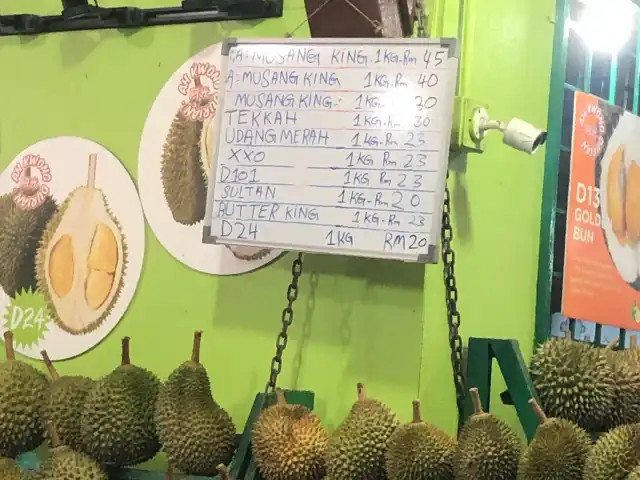 A+MUSANG KING 1KG-RM 45
A-MUSANG KING 1KG-RM 40
MUSANG KING- 1KG- 30
TEKKAH 1KG-RM 30
UDANG MERAH 1KG-RM 23
XXO 1KG RM 23
D101 1KG RM 23
SULTAN 1KG-RM 20
BUTTER KING 1KG-RM 23
D24 1KG RM20
D24
D13
GOLDEN
BUN